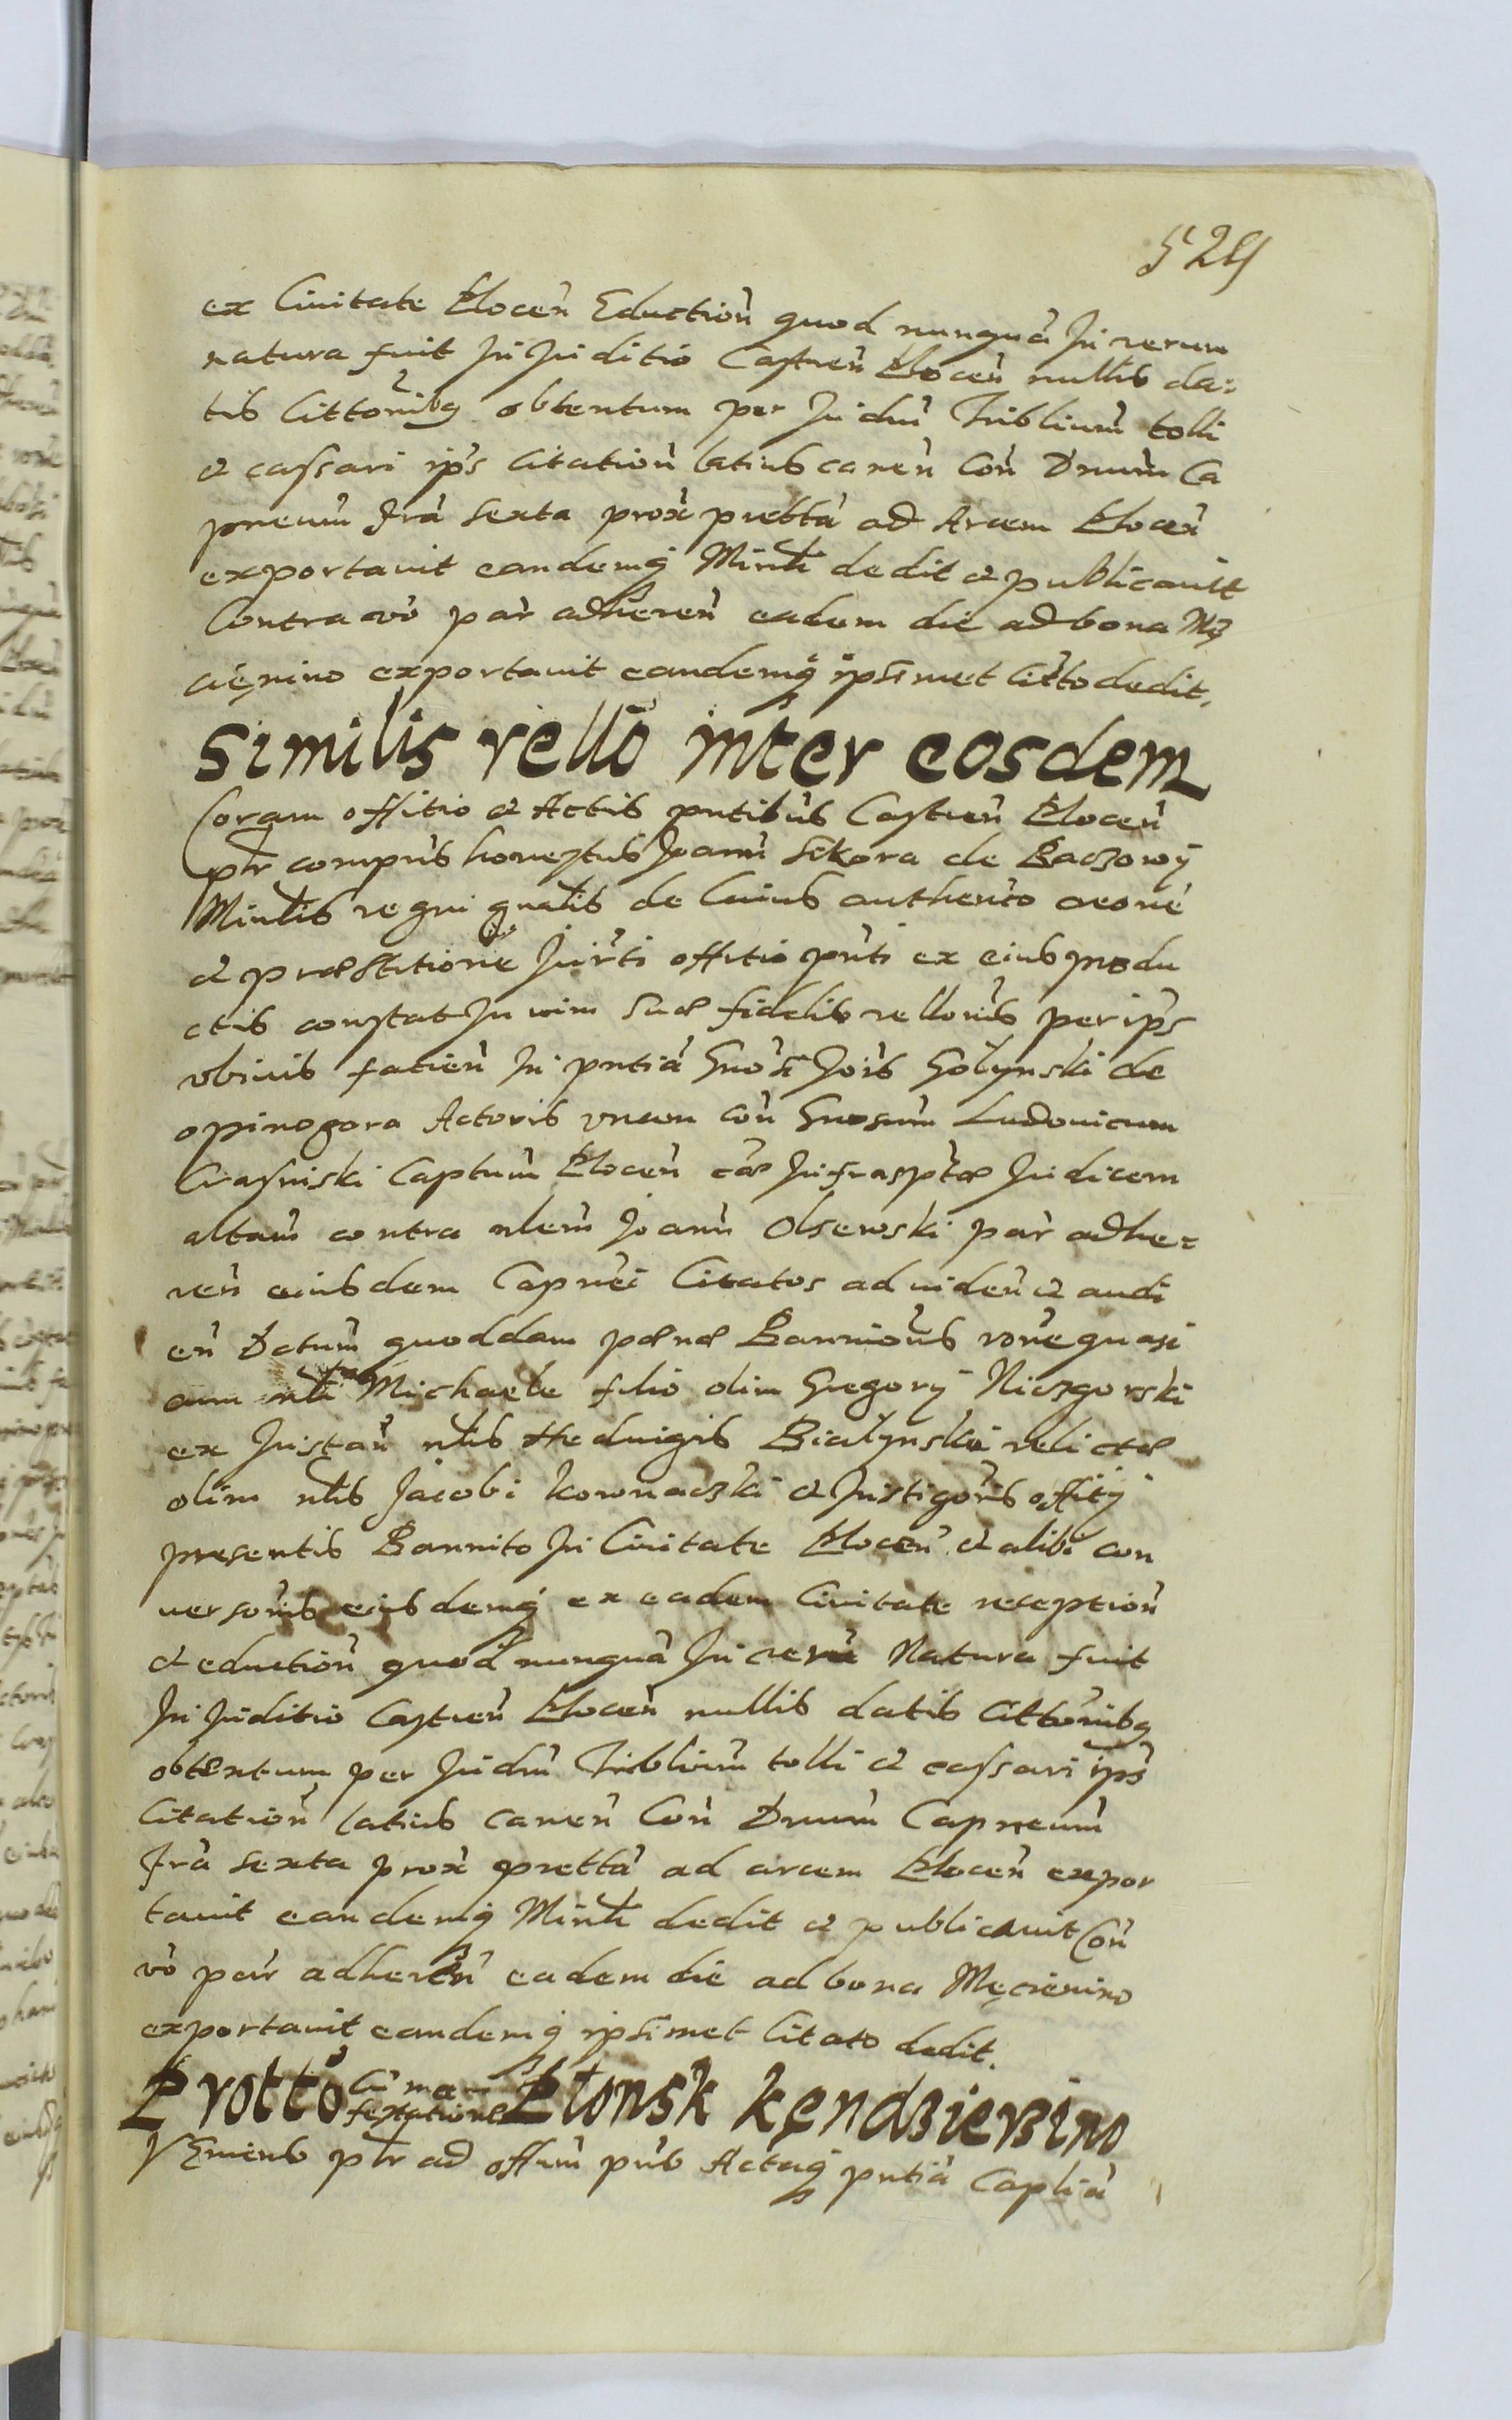 529
ex Ciuitate Plocen Eduction quod nunquā In rerum
natura fuit In Juditio Castren Plocen nullis da=
tis Cittonibg obtentum per Judm Triblium tolli
et cassari ips Citation latius canen Con Dnum Ca
pneum fra sexta prox pretta ad Arcem Plocen
exportauit eandemq Minli dedit et publicauit
Contra vo par adheren eadem die ad bona Mę
cięnino exportauit eandemq ipsimet Citto dedit.
Similis rello inter eosdem
Coram offitio et Actis pntibus Castren Plocen
plr compus honestus Joann Sikora de Baczowÿ
Minlis regni gnalis de Cuius authento aeone
et præstitione Jurti offitio pnti ex eius produ
ctis constat In vim suæ fidelis rellonis per ips
vbiuis facien In pntia Gnosi Jois Golynski de
opinogora Actoris vnam con Gnosum Ludouicum
Crasinski Captum Plocen cæ Infrasptæ Judicem
altam contra nlem Joann Olsewski par adhe=
ren eiusdem Capnei Citatos ad uiden et audi
en Dctum quoddam pænæ Bannionis rone quasi
cum nli Michaele filio olim Gregorÿ Niczgorski
ex Instan nlis Heduigis Bialynski relictæ
olim nlis Jacobi kownaczki et Instigoris offitÿ
presentis Bannito In Ciuitate Plocen et alibi con
uersonis eiusdemq ex eadem Ciuitate reception
et eduction quod nunquā In rerū Natura fuit
In Juditio Castren Plocen nullis datis Cittonibg
obtentum per Judm Triblium tolli et cassari ips
Citation latius canen Con Dnum Capneum
fra sexta prox pretta ad arcem Plocen expor
tauit eandemq Minli dedit et publicauit Con
vo par adheren eadem die ad bona Męcienino
exportauit eandemq ipsimet Citato dedit.
Protto Cū mani
festatione Plonsk kęndzierzino
Veniens plr ad offum pns Actaq pntia Caplia